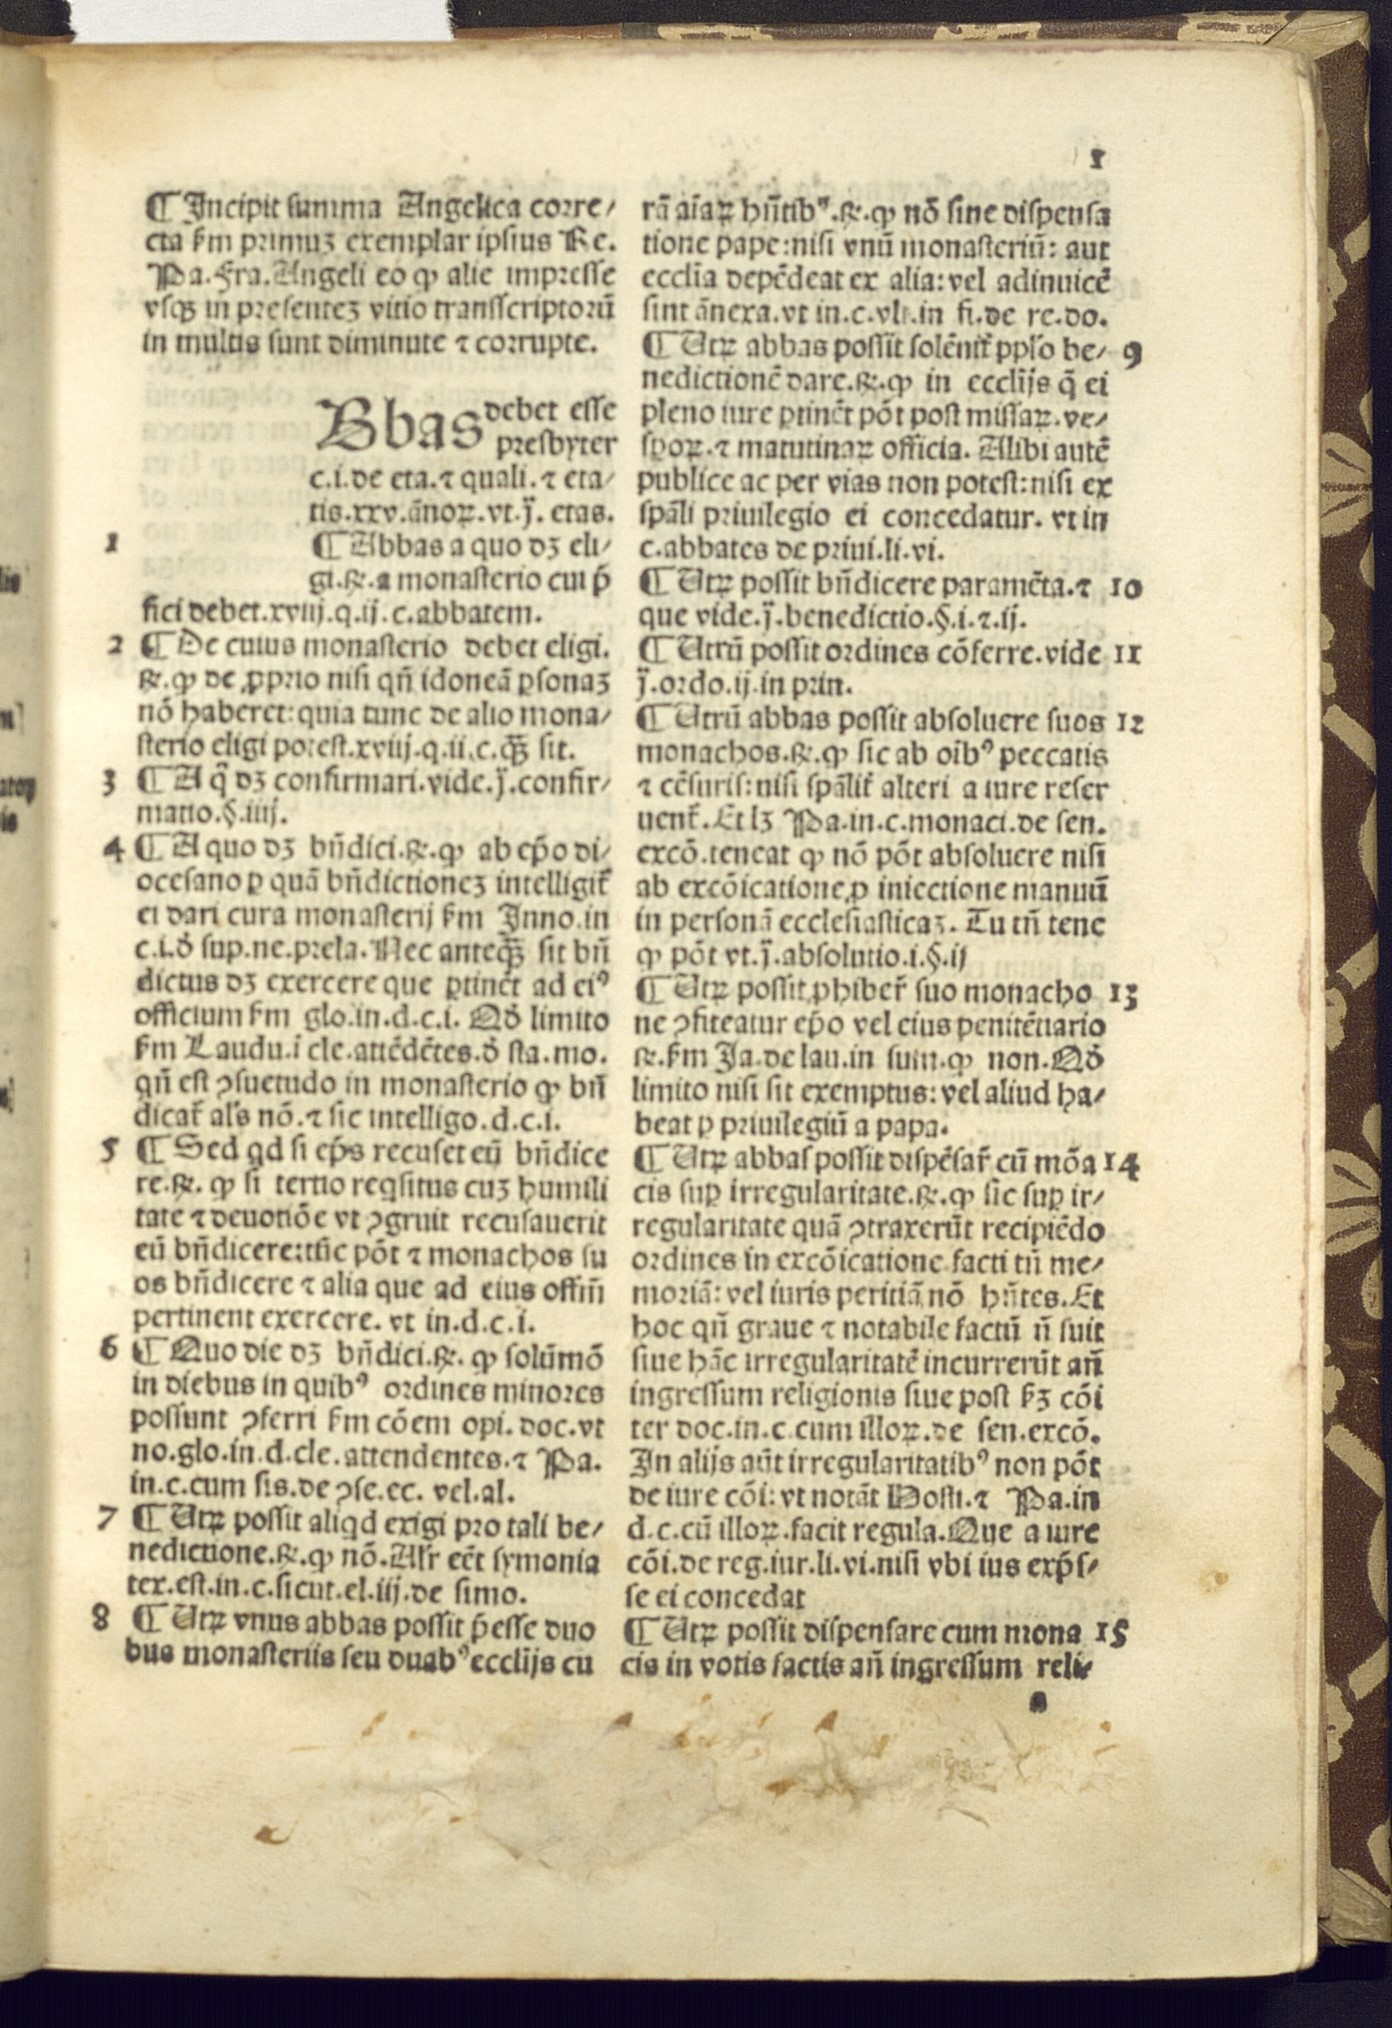 1
¶ Incipit summa Angelica corre/
cta ẜm primuꝫ exemplar ipsius Re.
Pa. Fra. Angeli eo ꝙ alie impresse
vsqꝫ in presenteꝫ vitio transscriptorū
in multis sunt diminute ⁊ corrupte.
Bbas debet esse
presbyter
c.i.de eta.⁊ quali.⁊ eta/
tis.xxv.ānoꝝ.vt.j̄. etas.
1 ¶ Abbas a quo dꝫ eli/
gi.℞.a monasterio cui p̄
fici debet.xviij.q.ij.c.abbatem.
2 ¶ De cuius monasterio debet eligi.
℞.ꝙ de ꝓprio nisi qn̄ idoneā ꝑsonaꝫ
nō haberet:quia tunc de alio mona/
sterio eligi potest.xviij.q.ii.c.qꝫ̄ sit.
3 ¶ A q̄ dꝫ confirmari.vide.j̄.confir/
matio.§.iiij.
4 ¶ A quo dꝫ bn̄dici.℞.ꝙ ab ep̄o di/
ocesano ꝑ quā bn̄dictioneꝫ intelligit᷑
ei dari cura monasterij ẜm Inno.in
c.i.d̄ sup.ne.prela.Nec anteqꝫ̄ sit bn̄
dictus dꝫ exercere que ꝑtinēt ad eiꝰ
officium ẜm glo.in.d.c.i. Qd̄ limito
ẜm Laudu.i cle.attēdētes.d̄ sta.mo.
qn̄ est ꝯsuetudo in monasterio ꝙ bn̄
dicat᷑ al's nō.⁊ sic intelligo.d.c.i.
5 ¶ Sed qd si ep̄s recuset eū bn̄dice
re.℞. ꝙ si tertio reqsitus cuꝫ humili
tate ⁊ deuotiōe vt ꝯgruit recusauerit
eū bn̄dicere:tūc pōt ⁊ monachos su
os bn̄dicere ⁊ alia que ad eius offm̄
pertinent exercere. vt in.d.c.i.
6 ¶ Quo die dꝫ bn̄dici.℞. ꝙ solūmō
in diebus in quibꝰ ordines minores
possunt ꝯferri ẜm cōem opi.doc.vt
no.glo.in.d.cle.attendentes.⁊ Pa.
in.c.cum sis.de ꝯse.ec. vel.al.
7 ¶ Utꝝ possit aliqd exigi pro tali be/
nedictione.℞.ꝙ nō.Al'r eēt symonia
tex.est.in.c.sicut.el.iij.de simo.
8 ¶ Utꝝ vnus abbas possit p̄esse duo
bus monasteriis seu duabꝰ ecclijs cu
rā aīaꝝ hn̄tibꝰ.℞.ꝙ nō sine dispensa
tione pape:nisi vnū monasteriū: aut
ecclīa depēdeat ex alia:vel adinuicē
sint ānexa.vt in.c.vlt.in fi.de re.do.
¶ Utꝝ abbas possit solēnit᷑ pplo be/ 9
nedictionē dare.℞.ꝙ in ecclijs q̄ ei
pleno iure ꝑtinēt pōt post missaꝝ.ve/
sꝑoꝝ.⁊ matutinaꝝ officia. Alibi autē
publice ac per vias non potest:nisi ex
spāli priuilegio ei concedatur. vt in
c.abbates de priui.li.vi.
¶ Utꝝ possit bn̄dicere paramēta.⁊ 10
que vide.j̄.benedictio.§.i.⁊.ij.
¶ Utrū possit ordines cōferre.vide 11
j̄.ordo.ij.in prin.
¶ Utrū abbas possit absoluere suos 12
monachos.℞.ꝙ sic ab oībꝰ peccatis
⁊ cēsuris:nisi spālit᷑ alteri a iure reser
uent᷑. Et lꝫ Pa.in.c.monaci.de sen.
excō.teneat ꝙ nō pōt absoluere nisi
ab excōicatione ꝑ iniectione manuū
in personā ecclesiasticaꝫ. Tu tn̄ tene
ꝙ pōt vt.j̄.absolutio.i.§.ij
¶ Utꝝ possit ꝓhiber᷑ suo monacho 13
ne ꝯfiteatur ep̄o vel eius penitētiario
℞.ẜm Ja.de lau.in sum.ꝙ non.Qd̄
limito nisi sit exemptus:vel aliud ha/
beat ꝑ priuilegiū a papa.
¶ Utꝝ abbas possit dispēsar᷑ cū mōa 14
cis suꝑ irregularitate.℞.ꝙ sic suꝑ ir/
regularitate quā ꝯtraxerūt recipiēdo
ordines in excōicatione facti tn̄ me/
moriā: vel iuris peritiā nō hn̄tes.Et
hoc qn̄ graue ⁊ notabile factū n̄ fuit
siue hāc irregularitatē incurrerūt an̄
ingressum religionis siue post ẜꝫ cōi
ter doc.in.c.cum illoꝝ.de sen.excō.
In alijs aūt irregularitatibꝰ non pōt
de iure cōi: vt notāt Hosti.⁊ Pa.in
d.c.cū illoꝝ.facit regula.Que a iure
cōi.de reg.iur.li.vi.nisi vbi ius exp̄s/
se ei concedat
¶ Utꝝ possit dispensare cum mona 15
cis in votis factis an̄ ingressum reli/
a